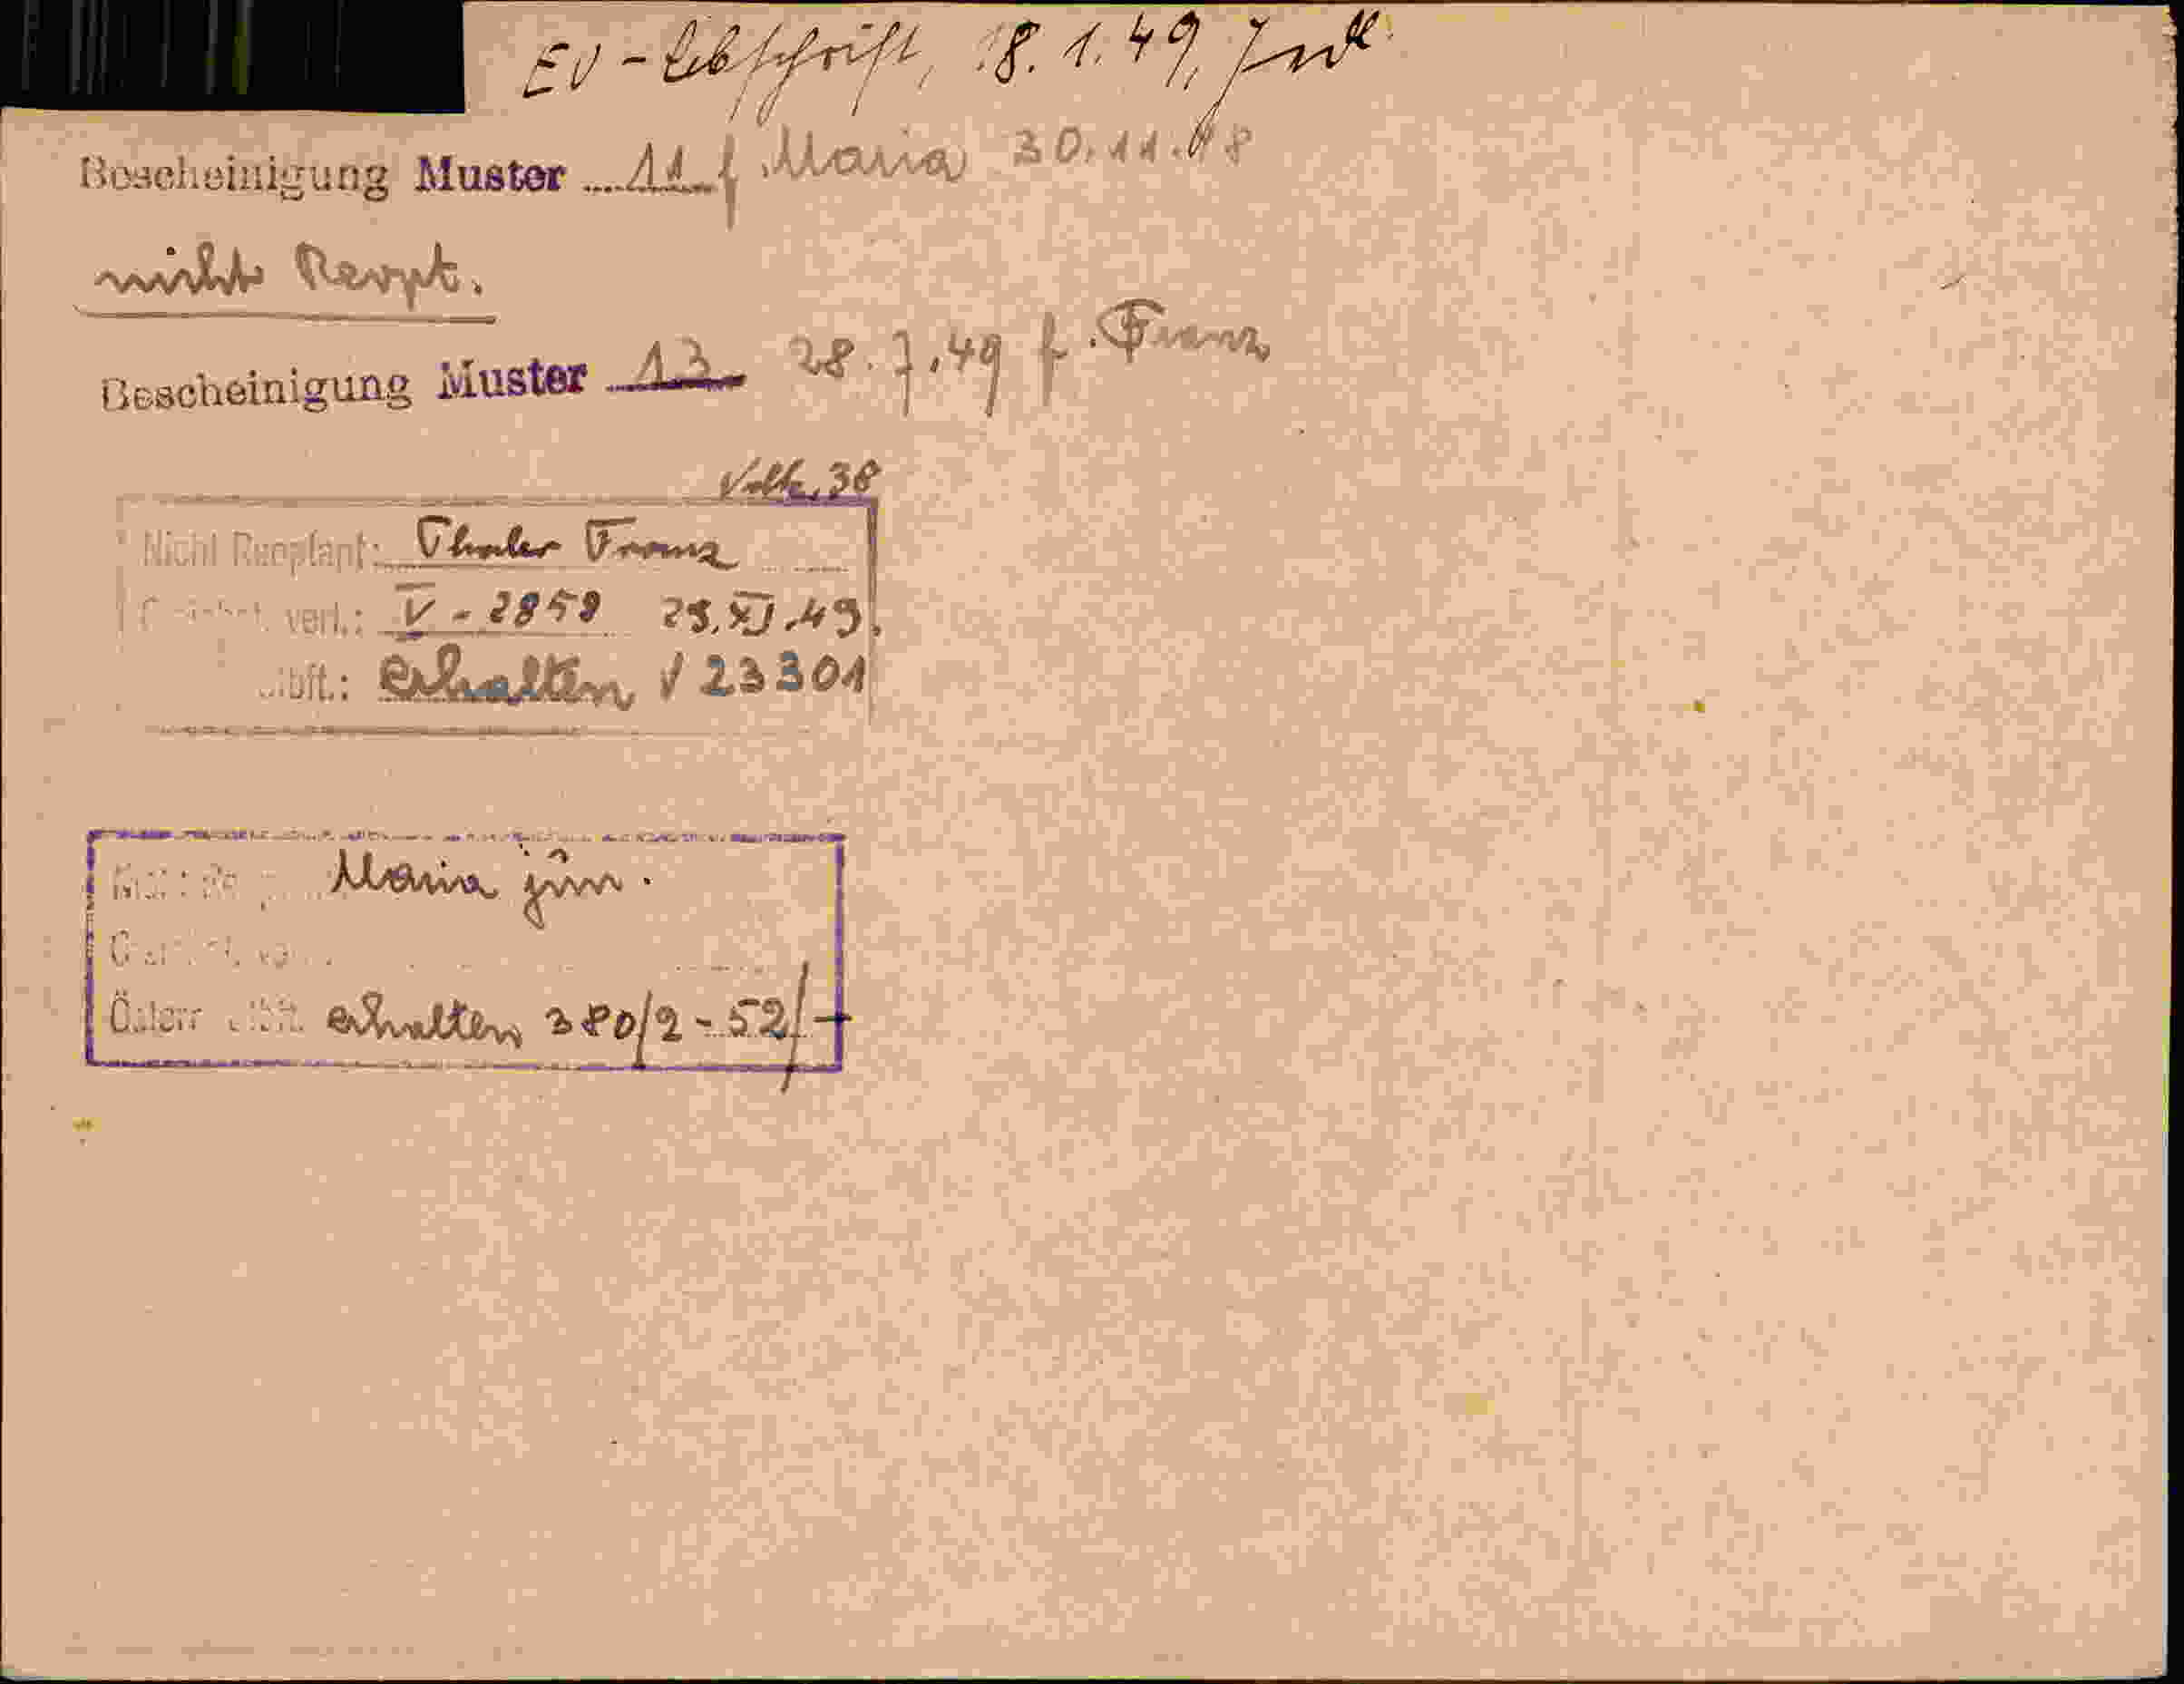 EU - Abschrift, 18. 1. 49,
Bescheinigung Muster 11 f Maria 30.11.48
nicht Reopt.
Bescheinigung Muster 13 28.7.49 f. Franz
38
Nicht Reoptant: Thaler Franz
verl.: V - 2859 25.XI.49.
erhalten √ 23301
Maria jun.
Österr erhalten 380/2 - 52/